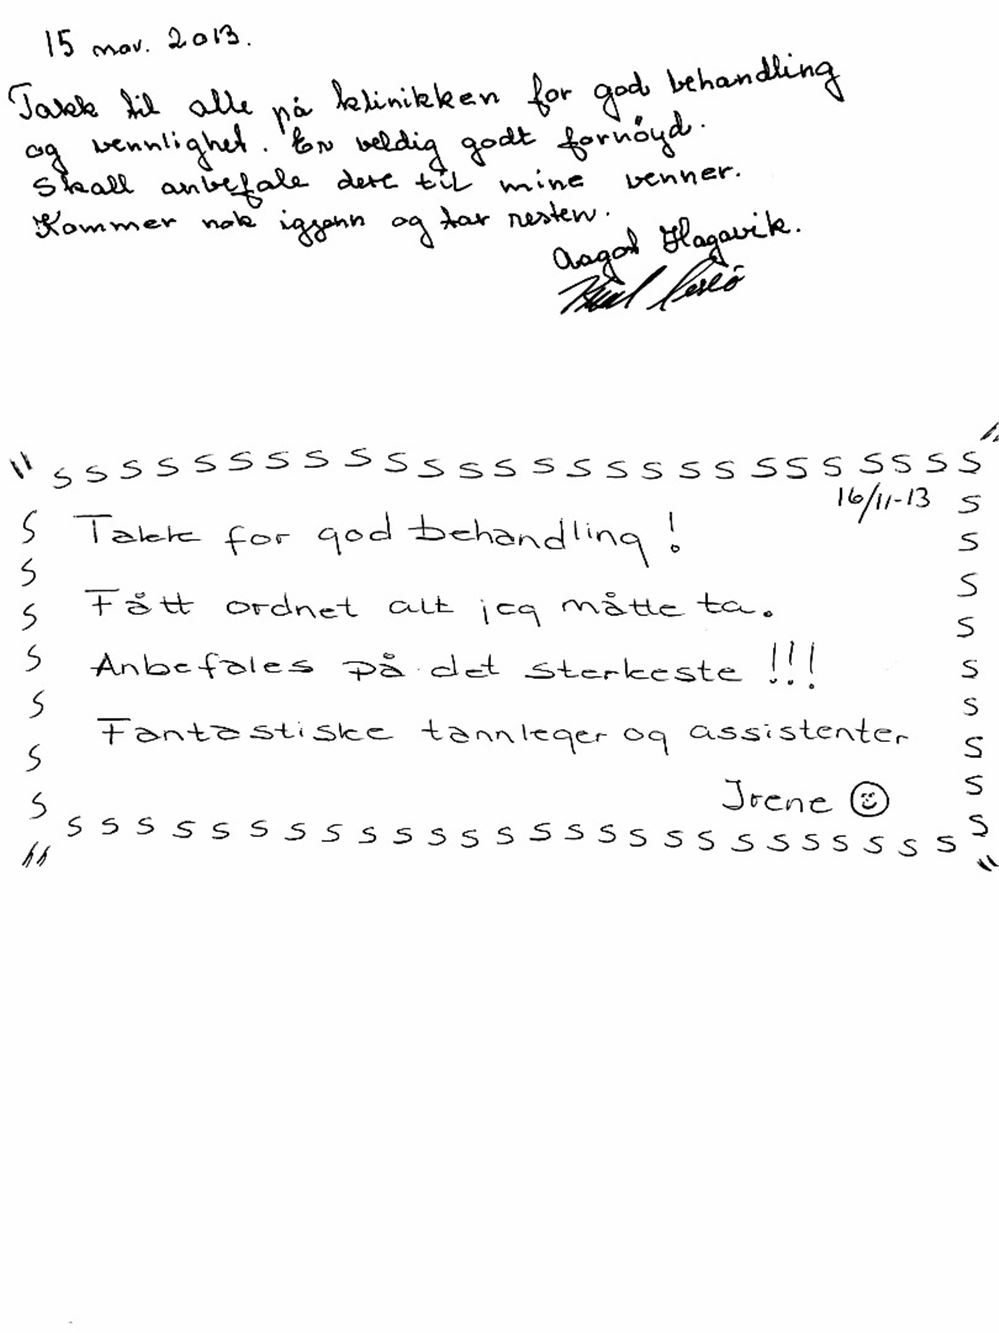 15 nov. 2013.
Takk til alle på klinikken for god behandling
og vennlighet. Er veldig godt fornøyd.
Skall anbefale dere til mine venner.
Kommer nok iggjenn og tar resten.
Aagot Hagavik.
" S S S S S S S S S S S S S S S S S S S S S S S S S S "
16/11-13
Takk for god behandling!
Fått ordnet alt jeg måtte ta.
Anbefales på det sterkeste !!!
Fantastiske tannleger og assistenter
Irene ☺
" S S S S S S S S S S S S S S S S S S S S S S S S "